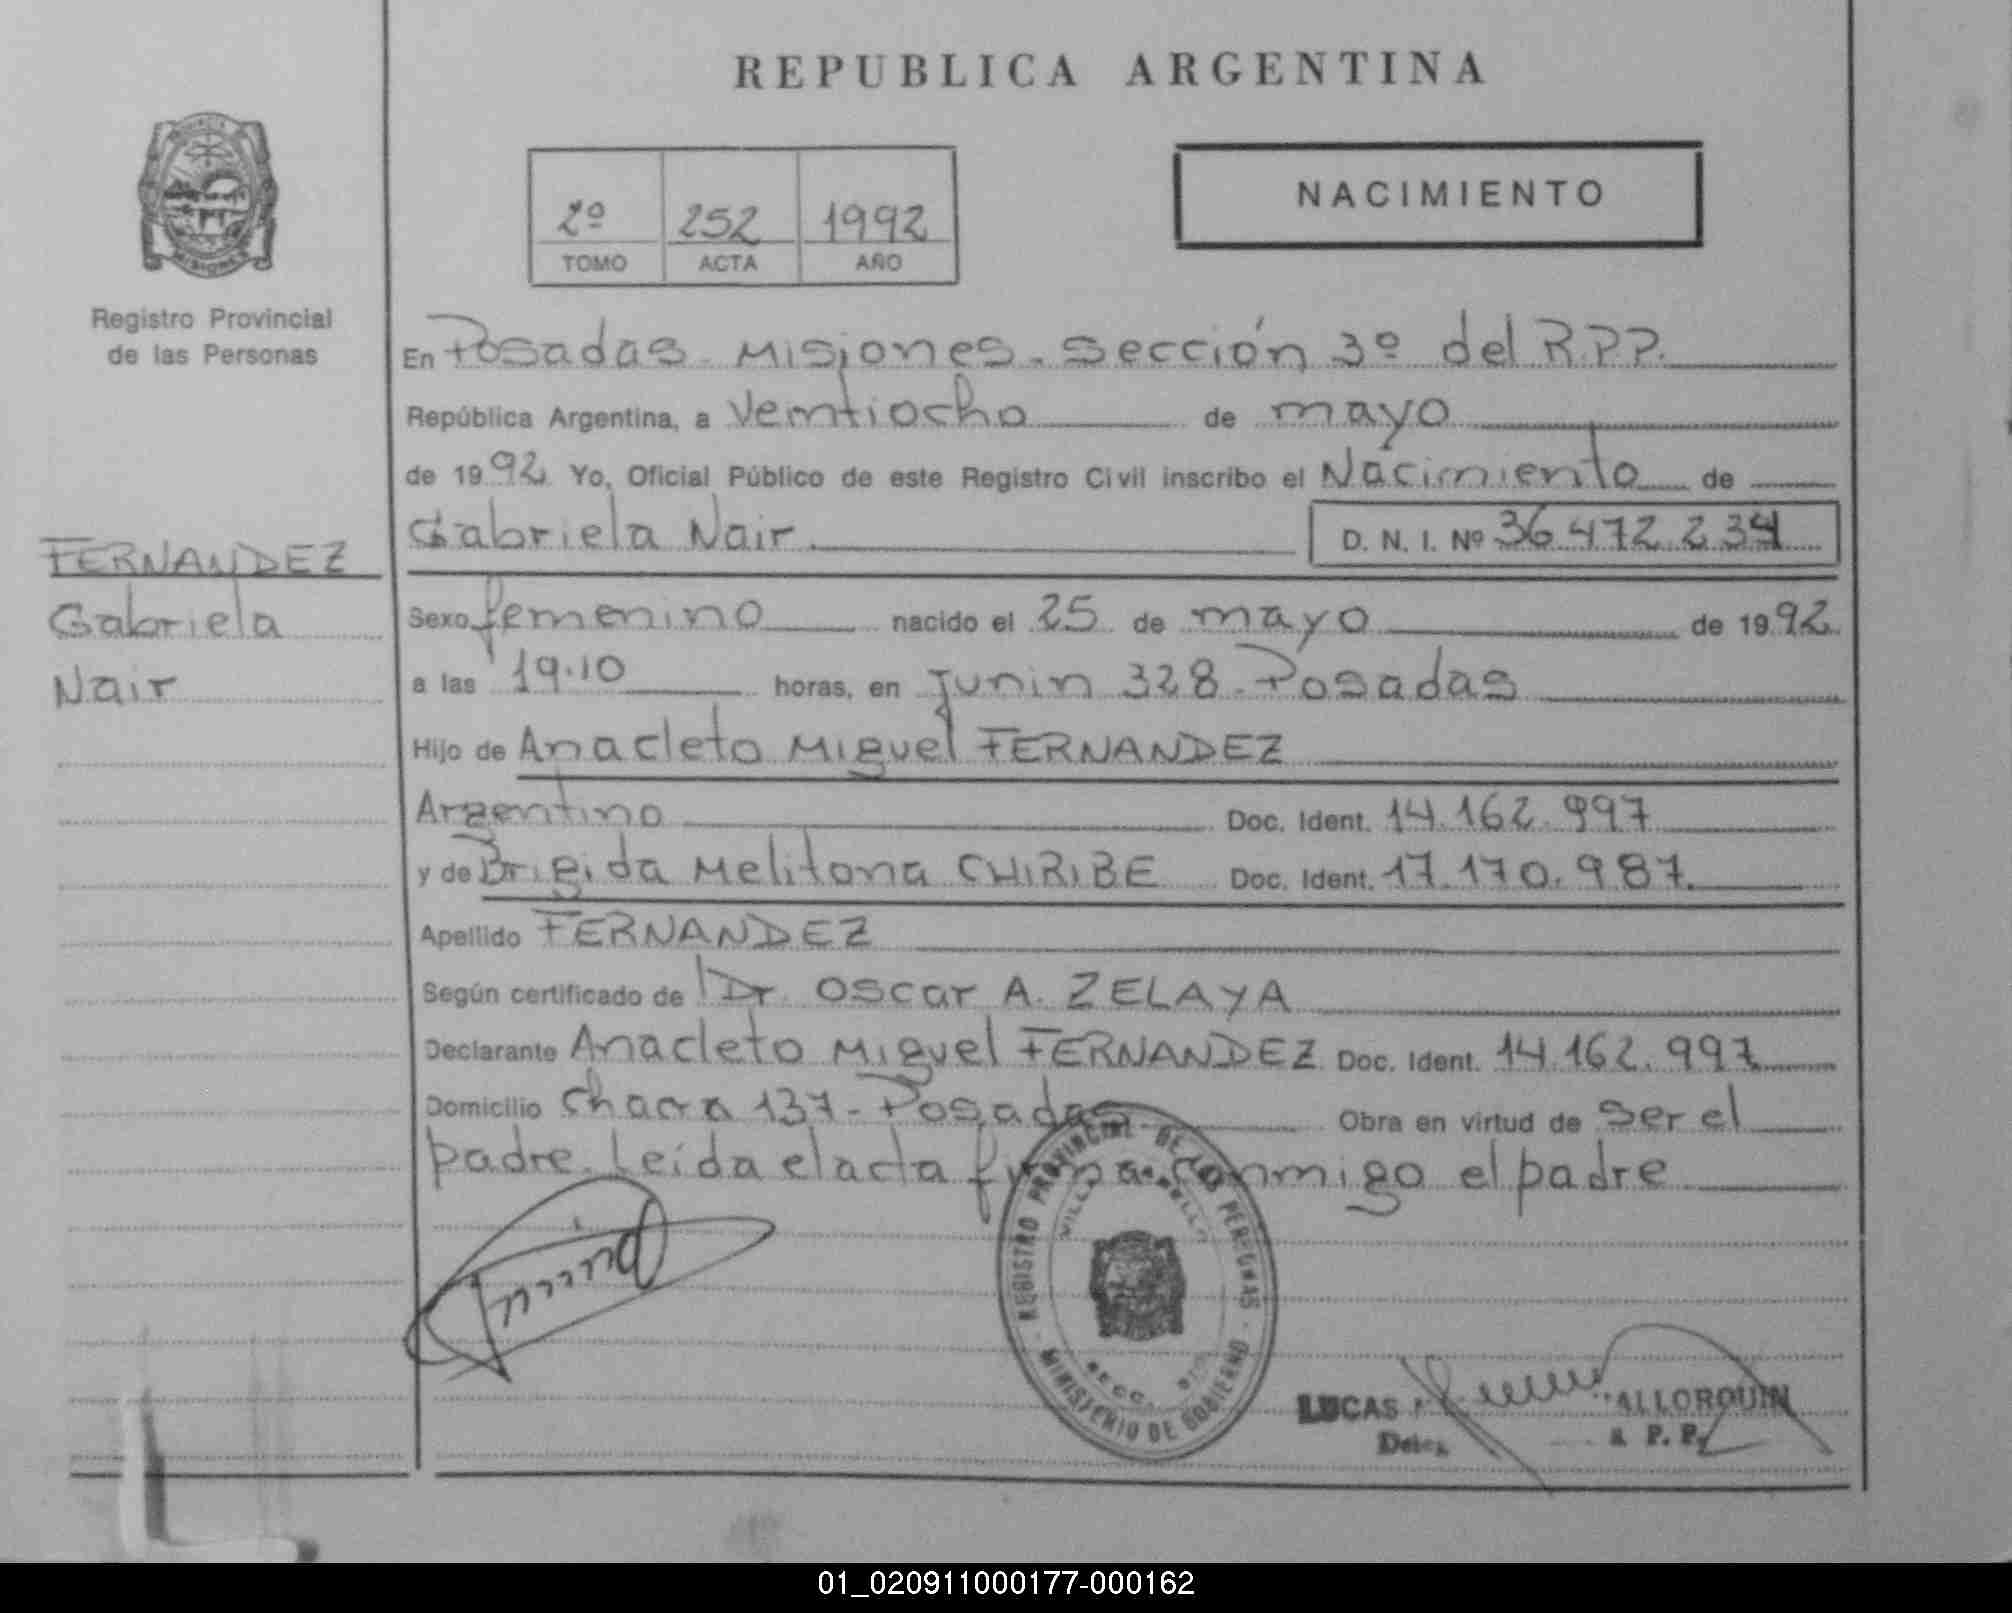 REPUBLICA ARGENTINA
PROVINCIA
MISIONES
Registro Provincial
de las Personas
2º 252 1992
TOMO ACTA AÑO
NACIMIENTO
En Posadas - Misiones - Sección 3º del R.P.P.
República Argentina, a Veintiocho de mayo
de 1992 Yo, Oficial Público de este Registro Civil inscribo el Nacimiento de
Gabriela Nair D. N. I. Nº 36.472.234
FERNANDEZ
Gabriela
Nair
Sexo femenino nacido el 25 de mayo de 1992
a las 19.10 horas, en Junin 328 - Posadas
Hijo de Anacleto Miguel FERNANDEZ
Argentino Doc. Ident. 14.162.997
y de Brigida Melitona CHIRIBE Doc. Ident. 17.170.987.
Apellido FERNANDEZ
Según certificado de Dr. Oscar A. ZELAYA
Declarante Anacleto Miguel FERNANDEZ Doc. Ident. 14.162.997
Domicilio Chacra 137 - Posadas Obra en virtud de ser el
padre. Leída el acta firma conmigo el padre
REGISTRO PROVINCIAL DE LAS PERSONAS
MINISTERIO DE GOBIERNO
LUCAS
01_020911000177-000162